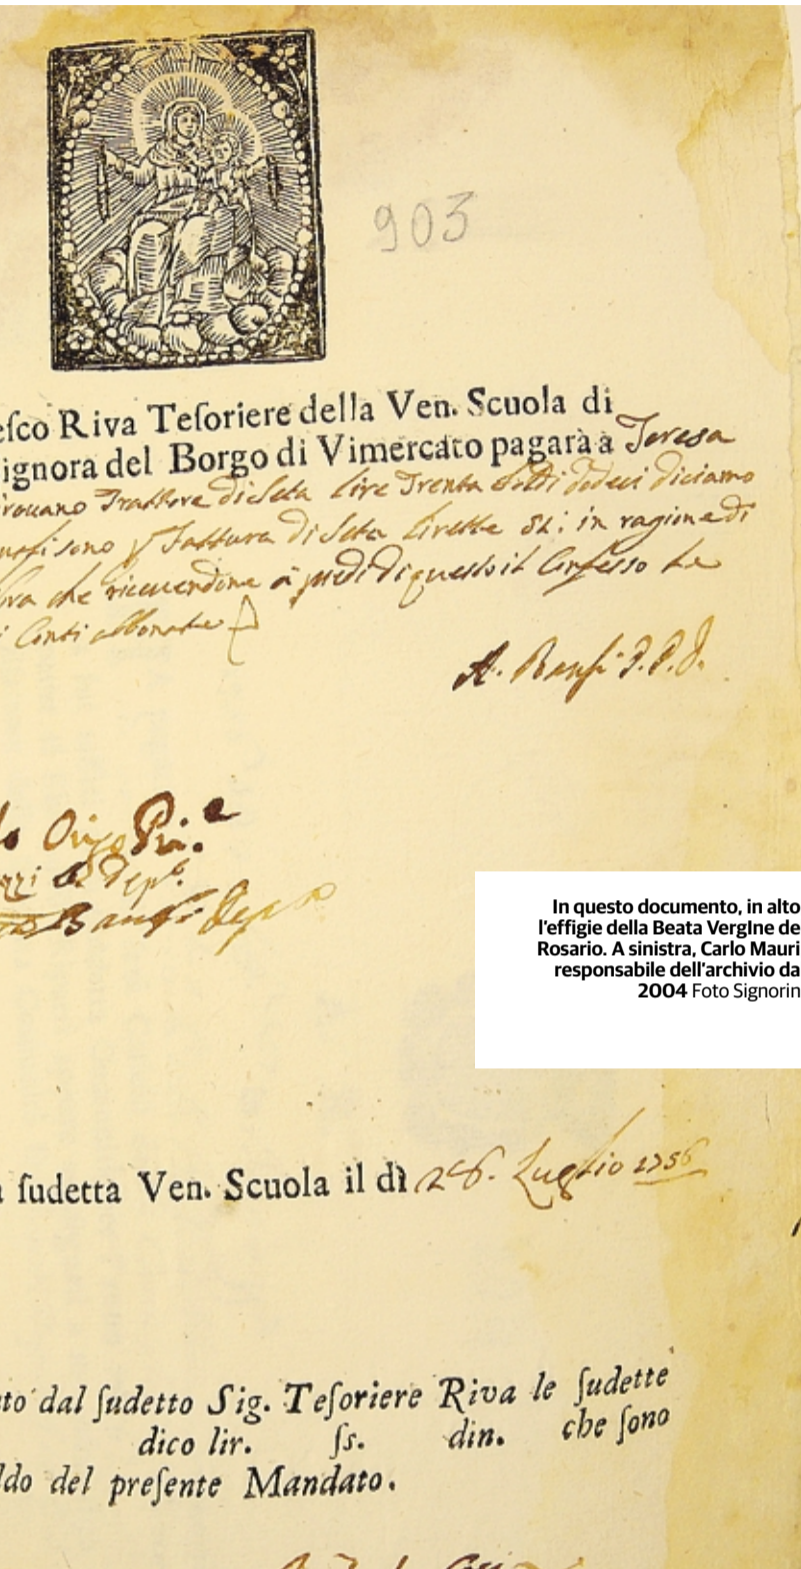 903
eſco Riva Teſoriere della Ven. Scuola di
ignora del Borgo di Vimercato pagarà à Teresa
rouano Trattore di Seta lire Trenta soldi dodeci diciamo
sono Fattura di Seta lirette 51: in ragione di
che riceuendone à piedi di questo il Confesso
Conti abbonate
A. Banfi
Origo Pri.e
Dep.
Banfi Dep
In questo documento, in alto
l'effigie della Beata VergIne de
Rosario. A sinistra, Carlo Mauri
responsabile dell'archivio da
2004 Foto Signorin
a ſudetta Ven. Scuola il dì 26. Luglio 1756
to dal ſudetto Sig. Teſoriere Riva le ſudette
dico lir. ſs. din. che ſono
ldo del preſente Mandato.